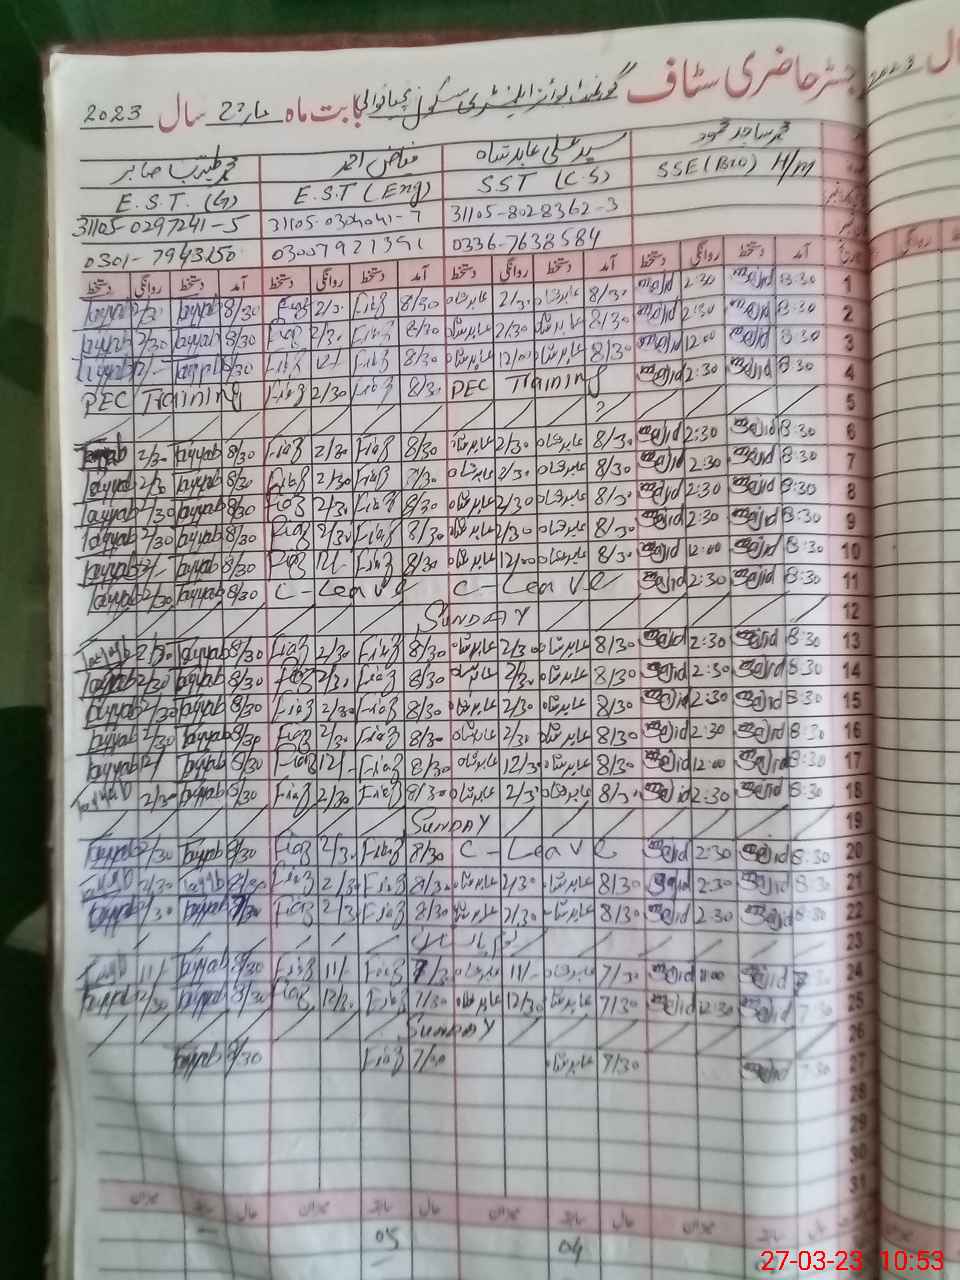 رجسٹر حاضری سٹاف گورنمنٹ بوائز ایلیمنٹری سکول بابت ماہ مارچ سال 2023
محمد ساجد محمود سید علی عابد شاہ فیاض احمد محمد طیب صابر
SSE (Bio) H/M SST (C.S) E.S.T (Eng) E.S.T. (G)
31105-8028362-3 31105-0297241-5
0336-7638584 03007921391 0301-7943150
آمد دستخط روانگی دستخط آمد دستخط روانگی دستخط آمد دستخط روانگی دستخط آمد دستخط روانگی دستخط
1 8:30 Sajid 2:30 Sajid 8/30 عابد شاہ 2/30 عابد شاہ 8/30 Fiaz 2/30 Fiaz 8/30 Tayyab 2/30 Tayyab
2 8:30 Sajid 2:30 Sajid 8/30 عابد شاہ 2/30 عابد شاہ 8/30 Fiaz 2/30 Fiaz 8/30 Tayyab 2/30 Tayyab
3 8:30 Sajid 12:00 Sajid 8/30 عابد شاہ 12/00 عابد شاہ 8/30 Fiaz 12/- Fiaz 8/30 Tayyab 12/- Tayyab
4 8:30 Sajid 2:30 Sajid PEC Training 8/30 Fiaz 2/30 Fiaz PEC Training
5
6 8:30 Sajid 2:30 Sajid 8/30 عابد شاہ 2/30 عابد شاہ 8/30 Fiaz 2/30 Fiaz 8/30 Tayyab 2/30 Tayyab
7 8:30 Sajid 2:30 Sajid 8/30 عابد شاہ 2/30 عابد شاہ Fiaz 2/30 Fiaz 8/30 Tayyab 2/30 Tayyab
8 8:30 Sajid 2:30 Sajid 8/30 عابد شاہ 2/30 عابد شاہ 8/30 Fiaz 2/30 Fiaz 8/30 Tayyab 2/30 Tayyab
9 8:30 Sajid 2:30 Sajid 8/30 عابد شاہ 2/30 عابد شاہ 8/30 Fiaz 2/30 Fiaz 8/30 Tayyab 2/30 Tayyab
10 8:30 Sajid 12:00 Sajid 8/30 عابد شاہ 12/00 عابد شاہ 8/30 Fiaz 12/- Fiaz 8/30 Tayyab 12/- Tayyab
11 8:30 Sajid 2:30 Sajid C-Leave C-Leave 8/30 Tayyab 2/30 Tayyab
12 SUNDAY
13 8:30 Sajid 2:30 Sajid 8/30 عابد شاہ 2/30 عابد شاہ 8/30 Fiaz 2/30 Fiaz 8/30 Tayyab 2/30 Tayyab
14 8:30 Sajid 2:30 Sajid 8/30 عابد شاہ 2/30 عابد شاہ 8/30 Fiaz 2/30 Fiaz 8/30 Tayyab 2/30 Tayyab
15 8:30 Sajid 2:30 Sajid 8/30 عابد شاہ 2/30 عابد شاہ 8/30 Fiaz 2/30 Fiaz 8/30 Tayyab 2/30 Tayyab
16 8:30 Sajid 2:30 Sajid 8/30 عابد شاہ 2/30 عابد شاہ 8/30 Fiaz 2/30 Fiaz 8/30 Tayyab 2/30 Tayyab
17 8:30 Sajid 12:00 Sajid 8/30 عابد شاہ 12/30 عابد شاہ 8/30 Fiaz 12/- Fiaz 8/30 Tayyab 12/ Tayyab
18 8:30 Sajid 2:30 Sajid 8/30 عابد شاہ 2/30 عابد شاہ 8/30 Fiaz 2/30 Fiaz 8/30 Tayyab 2/30 Tayyab
19 SUNDAY
20 8:30 Sajid 2:30 Sajid C-Leave 8/30 Fiaz 2/30 Fiaz 8/30 Tayyab 2/30 Tayyab
21 8:30 Sajid 2:30 Sajid 8/30 عابد شاہ 2/30 عابد شاہ 8/30 Fiaz 2/30 Fiaz 8/30 Tayyab 2/30 Tayyab
22 8:30 Sajid 2:30 Sajid 8/30 عابد شاہ 2/30 عابد شاہ 8/30 Fiaz 2/30 Fiaz Tayyab 2/30 Tayyab
23
24 Sajid 11:00 Sajid 7/30 عابد شاہ 11/- عابد شاہ 7/30 Fiaz 11/- Fiaz 8/30 Tayyab 11/- Tayyab
25 7:30 Sajid 12:30 Sajid 7/30 عابد شاہ 12/30 عابد شاہ 7/30 Fiaz 12/30 Fiaz Tayyab 12/30 Tayyab
26 SUNDAY
27 7:30 Sajid عابد شاہ Fiaz Tayyab
28
29
30
31
حال سابقہ میزان حال سابقہ میزان حال سابقہ میزان حال سابقہ میزان
04 05 -
27-03-23 10:53